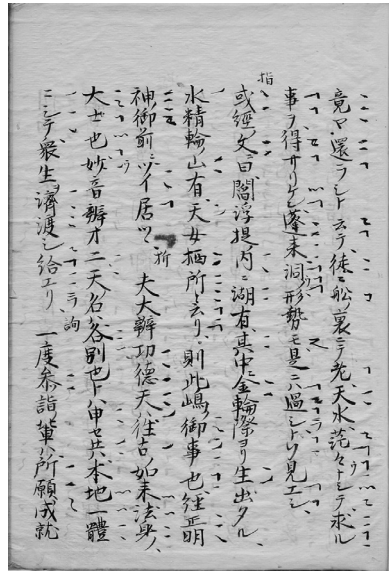 竟ヲ還ラシト云テ徒ニ舩ノ裏ニテ老天水茫々トシテ求ル
事ヲ得サリケン蓬莱洞ノ形勢モ是ニハ過シトソ見エシ
指
或経ノ文ニ曰閻浮提ノ内ニ湖有其中ニ金輪際ヨリ生出タル
水精輪山有天女栖所ト云リ則此嶋ノ御事也経正明
神ノ御前ニツイ居ツヽ 折 夫大辯功徳天ハ往古ノ如来法身ノ
大士也妙音辯才二天ノ名ハ各別也トハ申セ共本地一體
ニシテ衆生ヲ濟渡シ給エリ 一度参詣ノ輩ハ所願成就